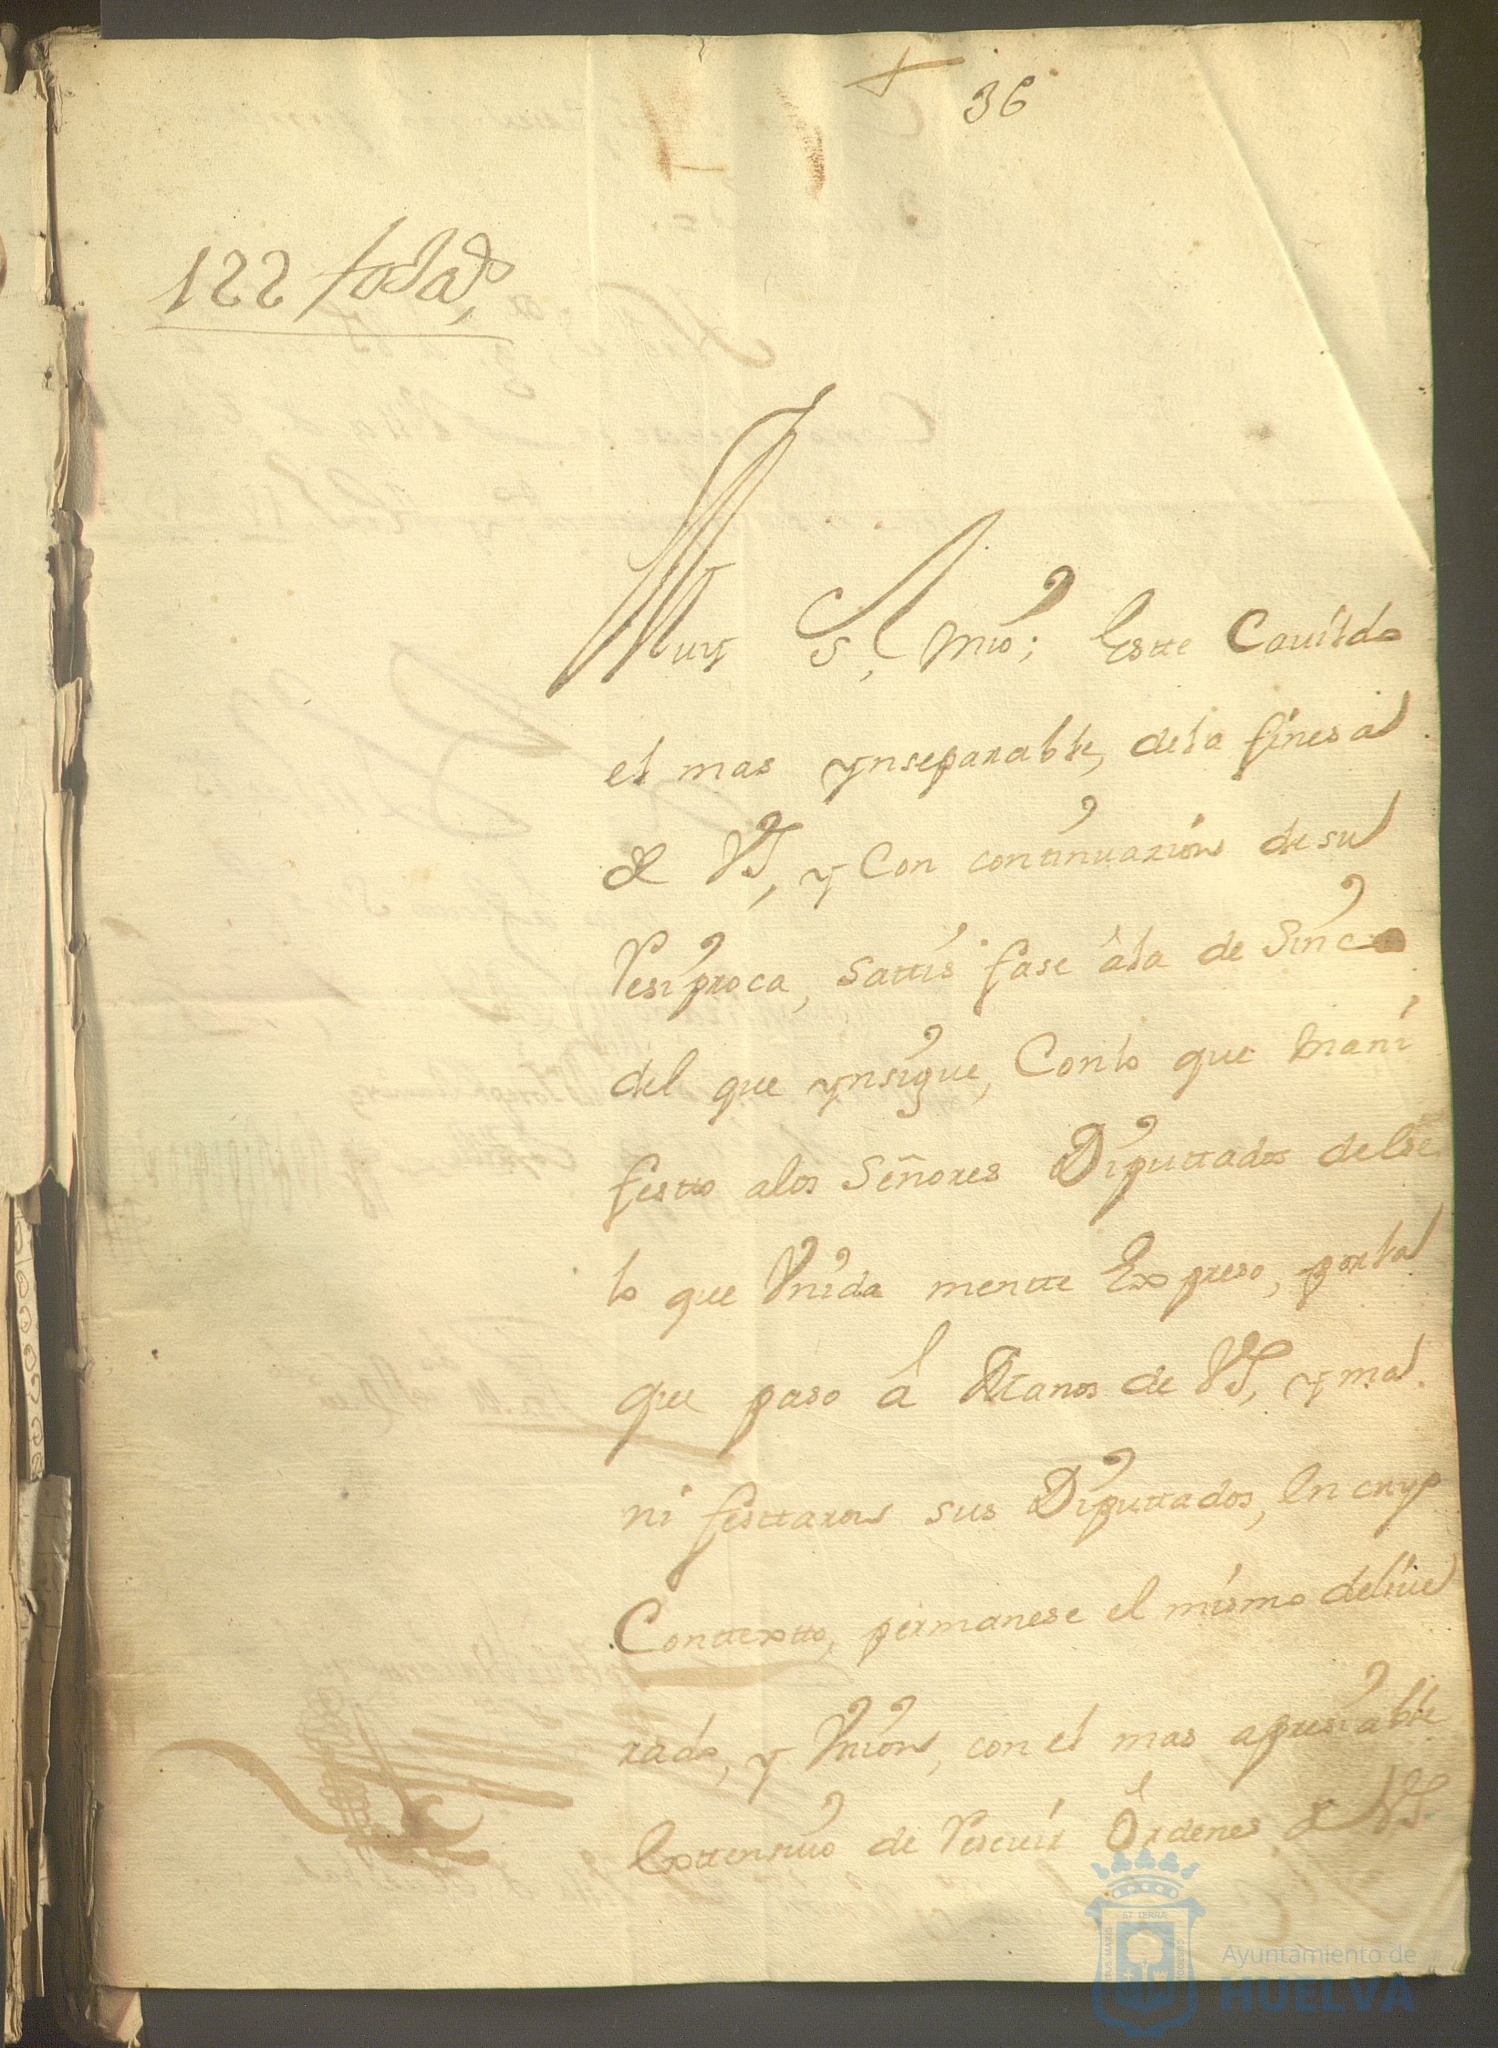 36
122
Muy S.r mio; Este Cavildo
el mas ynseparable, dela finesa
de VS, y Con continuazion de su
Resiproca, sattis fase âla de Sinco
del que ynsigue, Conlo que mani
festto alos Señores Diputtados delse
lo que Vnida mentte Expreso, por la
que paso á Manos de VS, y ma
ni festtaron sus Diputtados, En cuyo
Conttextto, permanese el mismo delive
rado, y Vnion, con el mas apresiable
Exttensivo de Resevir Ordenes de VS.
Ayuntamiento de
HUELVA